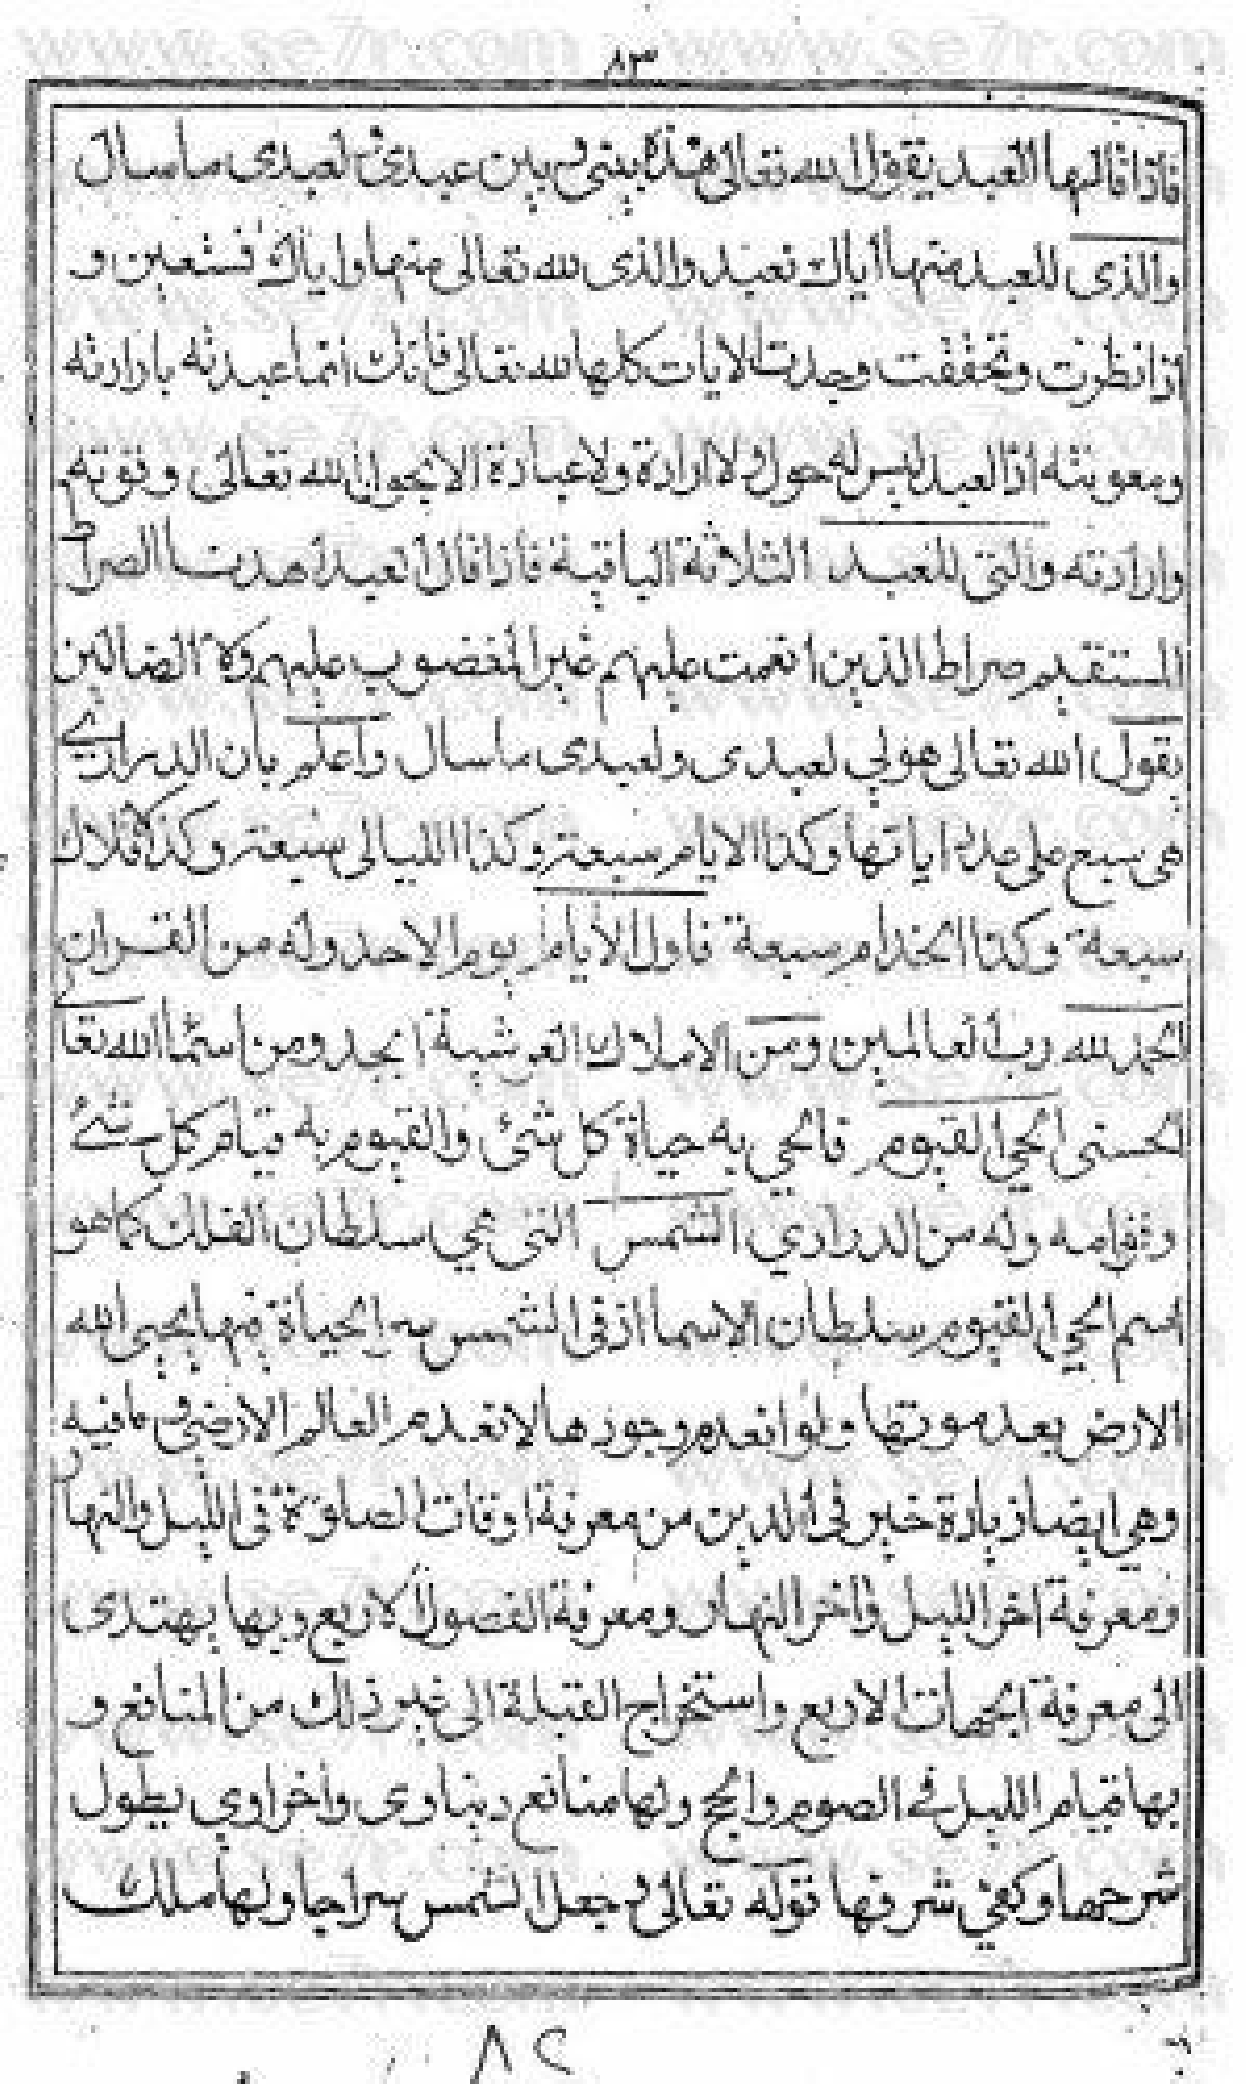 www.se7r.com www.se7r.com
٨٣
فاذا قالها العبد يقول الله تعالى هذه بيني وبين عبدي ولعبدى ماسال
والذى للعبد منها اياك نعبد والذى لله تعالى منها واياك نستعين و
اذا نظرت وتحققت وجدت الايات كلها لله تعالى فانك انما عبدته بارادته
ومعونته اذ العبد ليس له حول ولا ارادة ولا عبادة الا بحول الله تعالى وقوته
وارادته والتى للعبد الثلاثة الباقية فاذا قال العبد اهدنا الصراط
المستقيم صراط الذين انعمت عليهم غير المغضوب عليهم ولا الضالين
يقول الله تعالى هولي لعبدى ولعبدى ماسال واعلم بان الدراري
هى سبع على عدد اياتها وكذا الايام سبعة وكذا الليالى سبعة وكذا الافلاك
سبعة وكذا الخدام سبعة فاول الايام يوم الاحد وله من القران
الحمد لله رب العالمين ومن الاملاك العرشية ابجد ومن اسما الله تعا
الحسنى الحي القيوم فالحي به حياة كل شئ والقيوم به قيام كل شئ
وقوامه وله من الدراري الشمس التى هي سلطان الفلك كما هو
اسم الحي القيوم سلطان الاسما اذ فى الشمس سر الحياة فبها يحيى الله
الارض بعد موتها ولو انعدم وجودها لانعدم العالم الارضى وما فيه
وهي ايضا زيادة خير فى الدين من معرفة اوقات الصلوة فى الليل والنهار
ومعرفة اخر الليل واخر النهار ومعرفة الفصول الاربع وبها يهتدى
الى معرفة الجهات الاربع واستخراج القبلة الى غير ذلك من المنافع و
بها قيام الليل في الصوم والحج ولها منافع ديناوى واخراوي يطول
شرحها وكفي شرفها قوله تعالى وجعل الشمس سراجا ولها ملك
٨٢